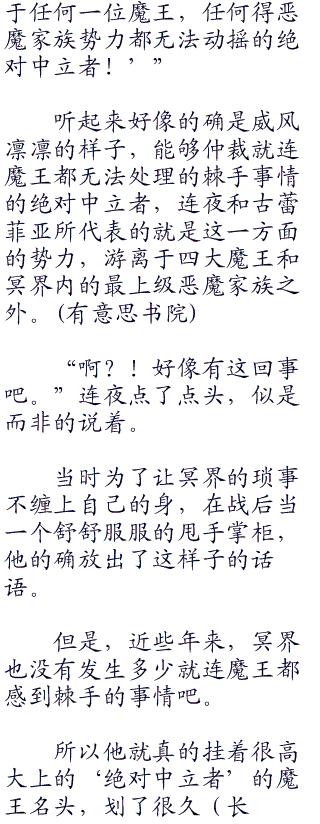 于任何一位魔王，任何得恶
魔家族势力都无法动摇的绝
对中立者！’”
听起来好像的确是威风
凛凛的样子，能够仲裁就连
魔王都无法处理的棘手事情
的绝对中立者，连夜和古蕾
菲亚所代表的就是这一方面
的势力，游离于四大魔王和
冥界内的最上级恶魔家族之
外。(有意思书院)
“啊？！好像有这回事
吧。”连夜点了点头，似是
而非的说着。
当时为了让冥界的琐事
不缠上自己的身，在战后当
一个舒舒服服的甩手掌柜，
他的确放出了这样子的话
语。
但是，近些年来，冥界
也没有发生多少就连魔王都
感到棘手的事情吧。
所以他就真的挂着很高
大上的‘绝对中立者’的魔
王名头，划了很久（长